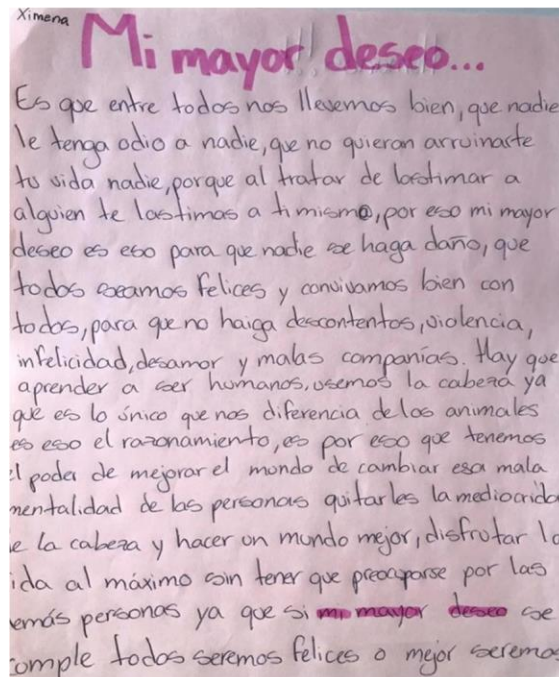 Ximena
Mi mayor deseo...
Es que entre todos nos llevemos bien, que nadie
le tenga odio a nadie, que no quieran arruinarte
tu vida nadie, porque al tratar de lastimar a
alguien te lastimas a ti mism@, por eso mi mayor
deseo es eso para que nadie se haga daño, que
todos seamos felices y convivamos bien con
todos, para que no haiga descontentos, violencia,
infelicidad, desamor y malas compañías. Hay que
aprender a ser humanos, usemos la cabeza ya
que es lo único que nos diferencia de los animales
es eso el razonamiento, es por eso que tenemos
el poder de mejorar el mundo de cambiar esa mala
mentalidad de las personas quitarles la mediocrida
de la cabeza y hacer un mundo mejor, disfrutar la
ida al máximo sin tener que preocuparse por las
emás personas ya que si mi mayor deseo se
cumple todos seremos felices o mejor seremos